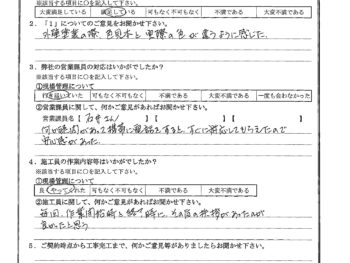 ※該当する項目に○を記入して下さい。
大変満足している 満足している 可もなく不可もなく 不満である 大変不満である
2.「1」についてのご意見をお聞かせ下さい。
外壁塗装の際、色見本と実際の色が違うように感じた。
3．弊社の営業課員の対応はいかがでしたか？
※該当する項目に○を記入して下さい。
①現場管理について
行き届いていた 可もなく不可もなく 不満である 大変不満である 一度も会わなかった
②営業課員に関して、何かご意見があればお聞かせ下さい。
営業課員名【 石井さん 】【 】【 】
何か疑問があって携帯に電話をすると、すぐに対応してもらえたので
安心感があった
4．施工員の作業内容等はいかがでしたか？
※該当する項目に○を記入して下さい。
①現場管理について
良くやってくれた 可もなく不可もなく 不満である 大変不満である
②施工員に関して、何かご意見があればお聞かせ下さい。
毎回、作業開始時と終了時に、その旨の挨拶があったのが
良かったと思う
5．ご契約時点から工事完工まで、何かご意見等がありましたらお聞かせ下さい。